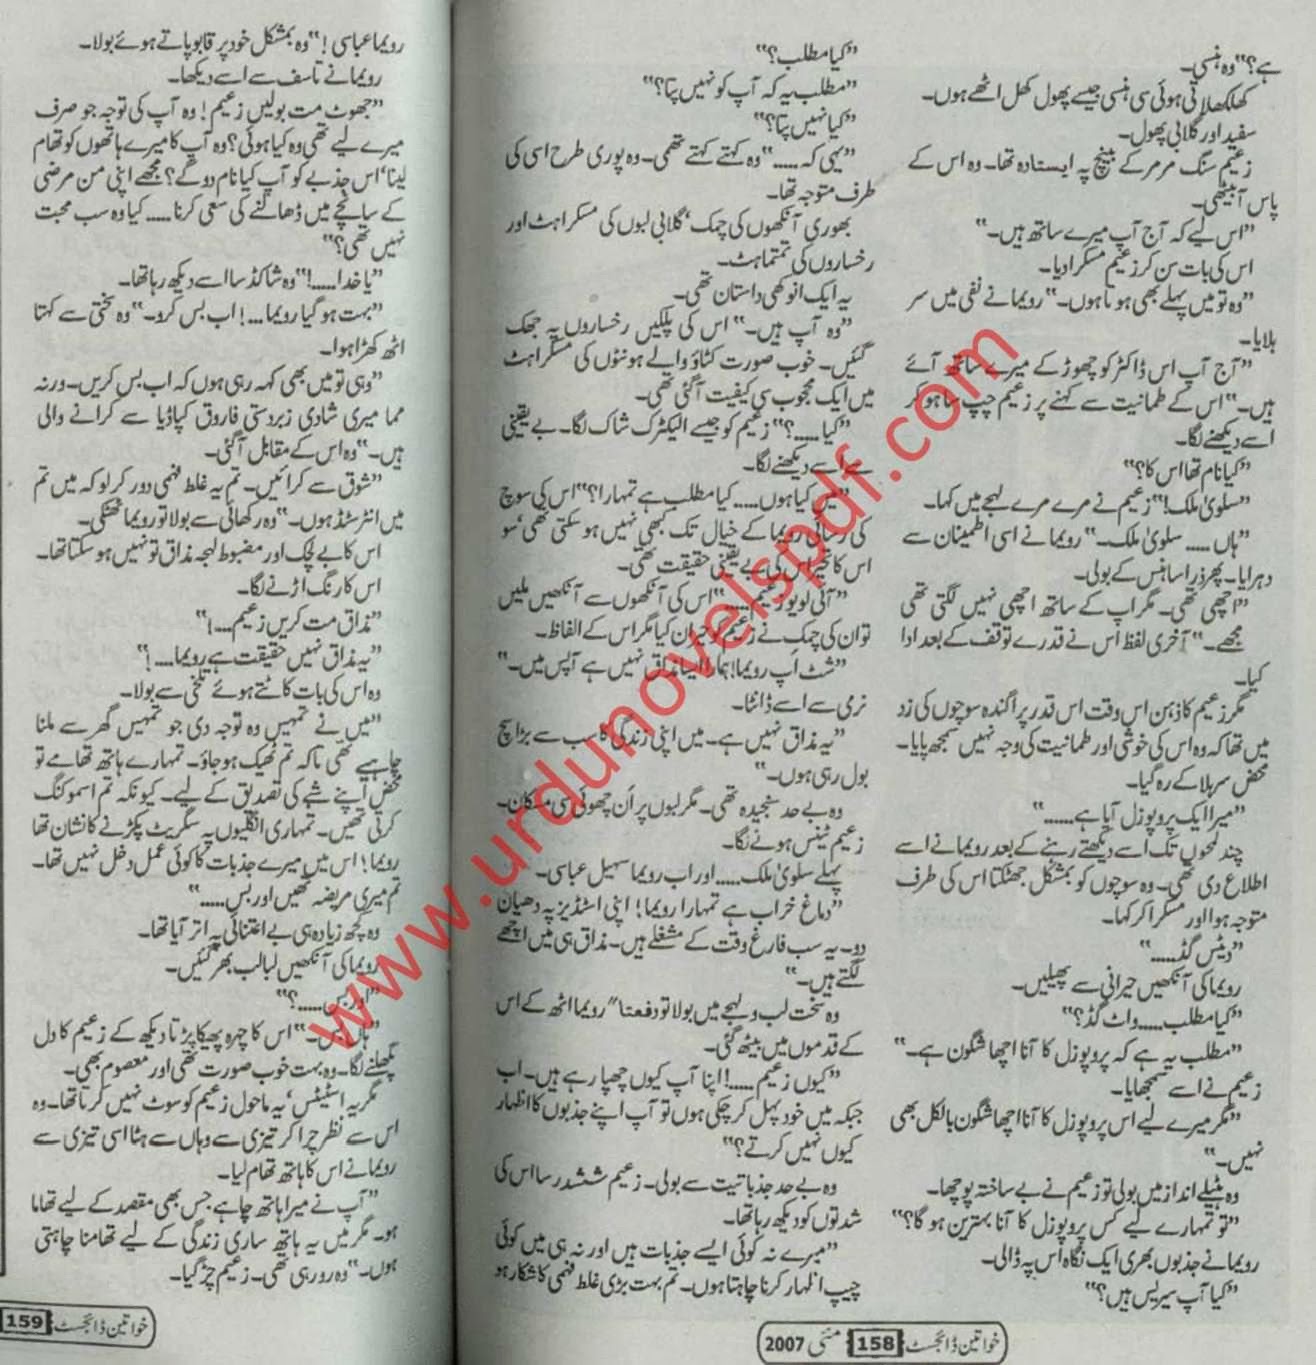 ہے؟“ وہ ہنسی۔
کھلکھلاتی ہوئی سی ہنسی جیسے پھول کھل اٹھے ہوں۔
سفید اور گلابی پھول۔
زعیم سنگ مرمر کے بینچ پہ ایستادہ تھا۔ وہ اس کے
پاس آ بیٹھی۔
”اس لیے کہ آج آپ میرے ساتھ ہیں۔“
اس کی بات سن کر زعیم مسکرا دیا۔
”وہ تو میں پہلے بھی ہوتا ہوں۔“ رویما نے نفی میں سر
ہلایا۔
”آج آپ اس ڈاکٹر کو چھوڑ کے میرے ساتھ آئے
ہیں۔“ اس کے طمانیت سے کہنے پر زعیم چپ سا ہو کر
اسے دیکھنے لگا۔
”کیا نام تھا اس کا؟“
”سلویٰ ملک!“ زعیم نے مرے مرے لہجے میں کہا۔
”ہاں ..... سلویٰ ملک۔“ رویما نے اسی اطمینان سے
دہرایا۔ پھر ذرا سا ہنس کے بولی۔
”اچھی تھی۔ مگر آپ کے ساتھ اچھی نہیں لگتی تھی
مجھے۔“ آخری لفظ اس نے قدرے توقف کے بعد ادا
کیا۔
مگر زعیم کا ذہن اس وقت اس قدر پراگندہ سوچوں کی زد
میں تھا کہ وہ اس کی خوشی اور طمانیت کی وجہ نہیں سمجھ پایا۔
محض سر ہلا کے رہ گیا۔
”میرا ایک پروپوزل آیا ہے......“
چند لمحوں تک اسے دیکھتے رہنے کے بعد رویما نے اسے
اطلاع دی تھی۔ وہ سوچوں کو بمشکل جھٹکتا اس کی طرف
متوجہ ہوا اور مسکرا کر کہا۔
”دیٹس گڈ.....“
رویما کی آنکھیں حیرانی سے پھیلیں۔
”کیا مطلب..... واٹ گڈ؟“
”مطلب یہ ہے کہ پروپوزل کا آنا اچھا شگون ہے۔“
زعیم نے اسے سمجھایا۔
”مگر میرے لیے اس پروپوزل کا آنا اچھا شگون بالکل بھی
نہیں۔“
وہ ہٹیلے انداز میں بولی تو زعیم نے بے ساختہ پوچھا۔
”تو تمہارے لیے کس پروپوزل کا آنا بہترین ہو گا؟“
رویما نے جذبوں بھری ایک نگاہ اس پہ ڈالی۔
”کیا آپ سیریس ہیں؟“
”کیا مطلب؟“
”مطلب یہ کہ آپ کو نہیں پتا؟“
”کیا نہیں پتا؟“
”یہی کہ .....“ وہ کہتے کہتے تھمی۔ وہ پوری طرح اسی کی
طرف متوجہ تھا۔
بھوری آنکھوں کی چمک‘ گلابی لبوں کی مسکراہٹ اور
رخساروں کی تمتماہٹ۔
یہ ایک انوکھی داستان تھی۔
”وہ آپ ہیں۔“ اس کی پلکیں رخساروں پہ جھک
گئیں۔ خوب صورت کٹاؤ والے ہونٹوں کی مسکراہٹ
میں ایک محجوب سی کیفیت آ گئی تھی۔
”کیا.....؟“ زعیم کو جیسے الیکٹرک شاک لگا۔ بے یقینی
سے اسے دیکھنے لگا۔
”میں کیا ہوں..... کیا مطلب ہے تمہارا؟“ اس کی سوچ
کی رسائی رویما کے خیال تک کبھی نہیں ہو سکتی تھی‘ سو
اس کا تحیر اس کی بے یقینی حقیقت تھی۔
”آئی لو یو زعیم.....“ اس کی آنکھوں سے آنکھیں ملیں
تو ان کی چمک نے زعیم کو حیران کیا مگر اس کے الفاظ۔
”شٹ اَپ رویما! ہمارا ایسا مذاق نہیں ہے آپس میں۔“
نرمی سے اسے ڈانٹا۔
”یہ مذاق نہیں ہے۔ میں اپنی زندگی کا سب سے بڑا سچ
بول رہی ہوں۔“
وہ بے حد سنجیدہ تھی۔ مگر لبوں پر اَن چھوئی سی مسکان۔
زعیم ٹینس ہونے لگا۔
پہلے سلویٰ ملک..... اور اب رویما سہیل عباسی۔
”دماغ خراب ہے تمہارا رویما! اپنی اسٹڈیز پہ دھیان
دو۔ یہ سب فارغ وقت کے مشغلے ہیں۔ مذاق ہی میں اچھے
لگتے ہیں۔“
وہ سخت لب و لہجے میں بولا تو دفعتا“ رویما اٹھ کے اس
کے قدموں میں بیٹھ گئی۔
”کیوں زعیم.....! اپنا آپ کیوں چھپا رہے ہیں۔ اب
جبکہ میں خود پہل کر چکی ہوں تو آپ اپنے جذبوں کا اظہار
کیوں نہیں کرتے؟“
وہ بے حد جذباتیت سے بولی۔ زعیم ششدر سا اس کی
شدتوں کو دیکھ رہا تھا۔
”میرے نہ کوئی ایسے جذبات ہیں اور نہ ہی میں کوئی
چیپ اظہار کرنا چاہتا ہوں۔ تم بہت بڑی غلط فہمی کا شکار ہو
خواتین ڈائجسٹ 158 مئی 2007
رویما عباسی!“ وہ بمشکل خود پر قابو پاتے ہوئے بولا۔
رویما نے تاسف سے اسے دیکھا۔
”جھوٹ مت بولیں زعیم! وہ آپ کی توجہ جو صرف
میرے لیے تھی وہ کیا ہوئی؟ وہ آپ کا میرے ہاتھوں کو تھام
لینا‘ اس جذبے کو آپ کیا نام دو گے؟ مجھے اپنی من مرضی
کے سانچے میں ڈھالنے کی سعی کرنا..... کیا وہ سب محبت
نہیں تھی؟“
”یا خدا.....!“ وہ شاکڈ سا اسے دیکھ رہا تھا۔
”بہت ہو گیا رویما...! اب بس کرو۔“ وہ سختی سے کہتا
اٹھ کھڑا ہوا۔
”وہی تو میں بھی کہہ رہی ہوں کہ اب بس کریں۔ ورنہ
مما میری شادی زبردستی فاروق کپاڈیا سے کرانے والی
ہیں۔“ وہ اس کے مقابل آ گئی۔
”شوق سے کرائیں۔ تم یہ غلط فہمی دور کر لو کہ میں تم
میں انٹرسٹڈ ہوں۔“ وہ رکھائی سے بولا تو رویما ٹھٹکی۔
اس کا بے لچک اور مضبوط لہجہ مذاق تو نہیں ہو سکتا تھا۔
اس کا رنگ اڑنے لگا۔
”مذاق مت کریں زعیم...!“
”یہ مذاق نہیں حقیقت ہے رویما....!“
وہ اس کی بات کاٹتے ہوئے تلخی سے بولا۔
”میں نے تمہیں وہ توجہ دی جو تمہیں گھر سے ملنا
چاہیے تھی تاکہ تم ٹھیک ہو جاؤ۔ تمہارے ہاتھ تھامے تو
محض اپنے شبے کی تصدیق کے لیے۔ کیونکہ تم اسموکنگ
کرتی تھیں۔ تمہاری انگلیوں پہ سگریٹ پکڑنے کا نشان تھا
رویما! اس میں میرے جذبات کا کوئی عمل دخل نہیں تھا۔
تم میری مریضہ تھیں اور بس.....“
وہ کچھ زیادہ ہی بے اعتنائی پہ اتر آیا تھا۔
رویما کی آنکھیں لبالب بھر گئیں۔
”اور بس.....؟“
”ہاں بس۔“ اس کا چہرہ پھیکا پڑتا دیکھ کے زعیم کا دل
پگھلنے لگا۔ وہ بہت خوب صورت تھی اور معصوم بھی۔
مگر یہ اسٹیٹس‘ یہ ماحول زعیم کو سوٹ نہیں کرتا تھا۔ وہ
اس سے نظر چرا کر تیزی سے وہاں سے ہٹا اسی تیزی سے
رویما نے اس کا ہاتھ تھام لیا۔
”آپ نے میرا ہاتھ چاہے جس بھی مقصد کے لیے تھاما
ہو۔ مگر میں یہ ہاتھ ساری زندگی کے لیے تھامنا چاہتی
ہوں۔“ وہ رو رہی تھی۔ زعیم چڑ گیا۔
خواتین ڈائجسٹ 159
www.urdunovelspdf.com